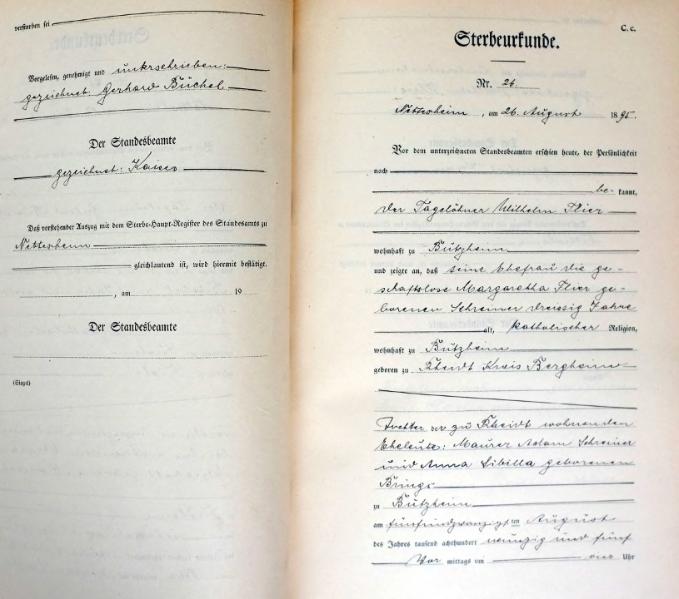 verstorben sei
Vorgelesen, genehmigt und unterschrieben:
gezeichnet: Gerhard Büchel
Der Standesbeamte
gezeichnet: Kaiser
Daß vorstehender Auszug mit dem Sterbe-Haupt-Register des Standesamts zu
Nettesheim
gleichlautend ist, wird hiermit bestätigt.
, am 19
Der Standesbeamte
(Siegel)
C. c.
Sterbeurkunde.
Nr. 26
Nettesheim, am 26. August 1895.
Vor dem unterzeichneten Standesbeamten erschien heute, der Persönlichkeit
nach
be- kannt,
der Tagelöhner Wilhelm Flier
wohnhaft zu Bützheim
und zeigte an, daß seine Ehefrau die ge-
schäftslose Margaretha Flier ge-
borenen Schreiner dreissig Jahre
alt, katholischer Religion,
wohnhaft zu Bützheim
geboren zu Rheidt Kreis Bergheim
der zu Rheidt wohnenden
Eheleute: Maurer Adam Schreiner
und Anna Sibilla geborenen
Brings
zu Bützheim
am fünfundzwanzigsten August
des Jahres tausend achthundert neunzig und fünf
Vor mittags um Uhr